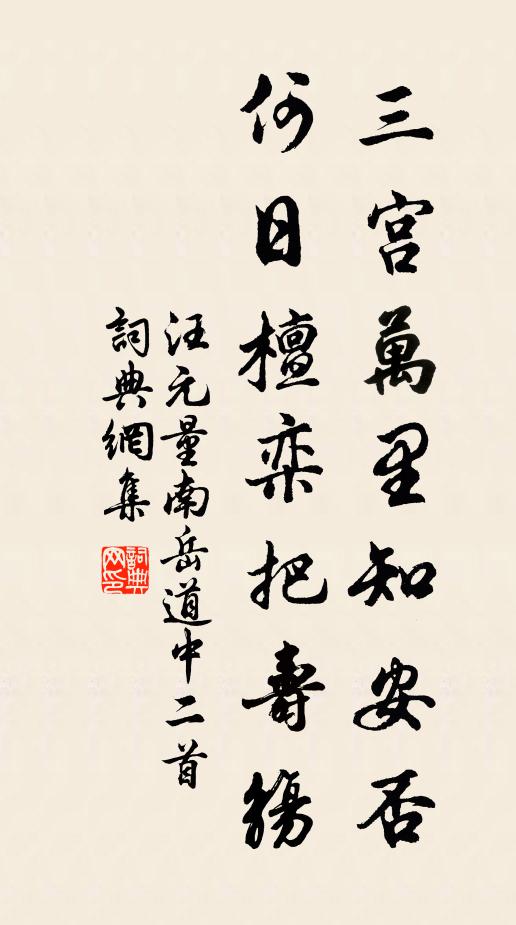 三宮萬里知安否
何日檀欒把壽觴
汪元量南岳道中二首
詞典網集
詞典
网印